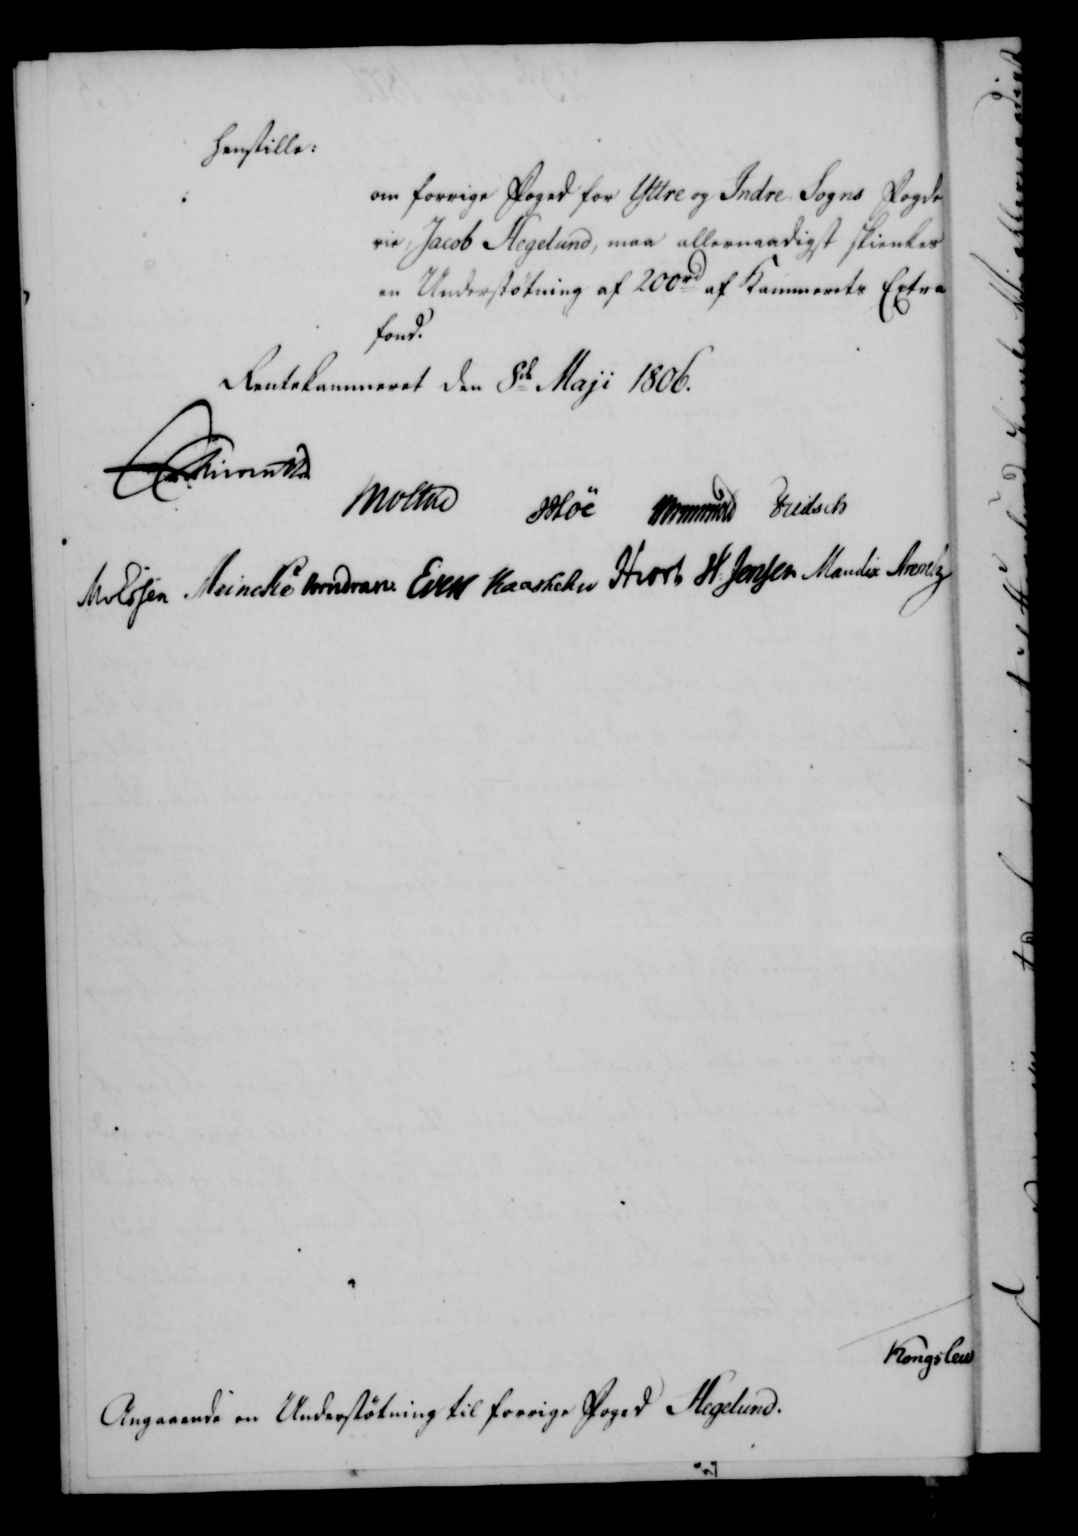 henstille:
om forrige Foged for Yttre og Indre Sogns Fogde
rie, Jacob Hegelund, maa allernaadigst skienkes
en Understötning af 200 rd af Kammerets Extra
fond.
Rentekammeret den 8de Maji 1806.
Moltke Fridsch
Meincke Hvort H. Jensen Mandix Arentz
Kongslew
Angaaende en Understötning til forrige Foged Hegelund.